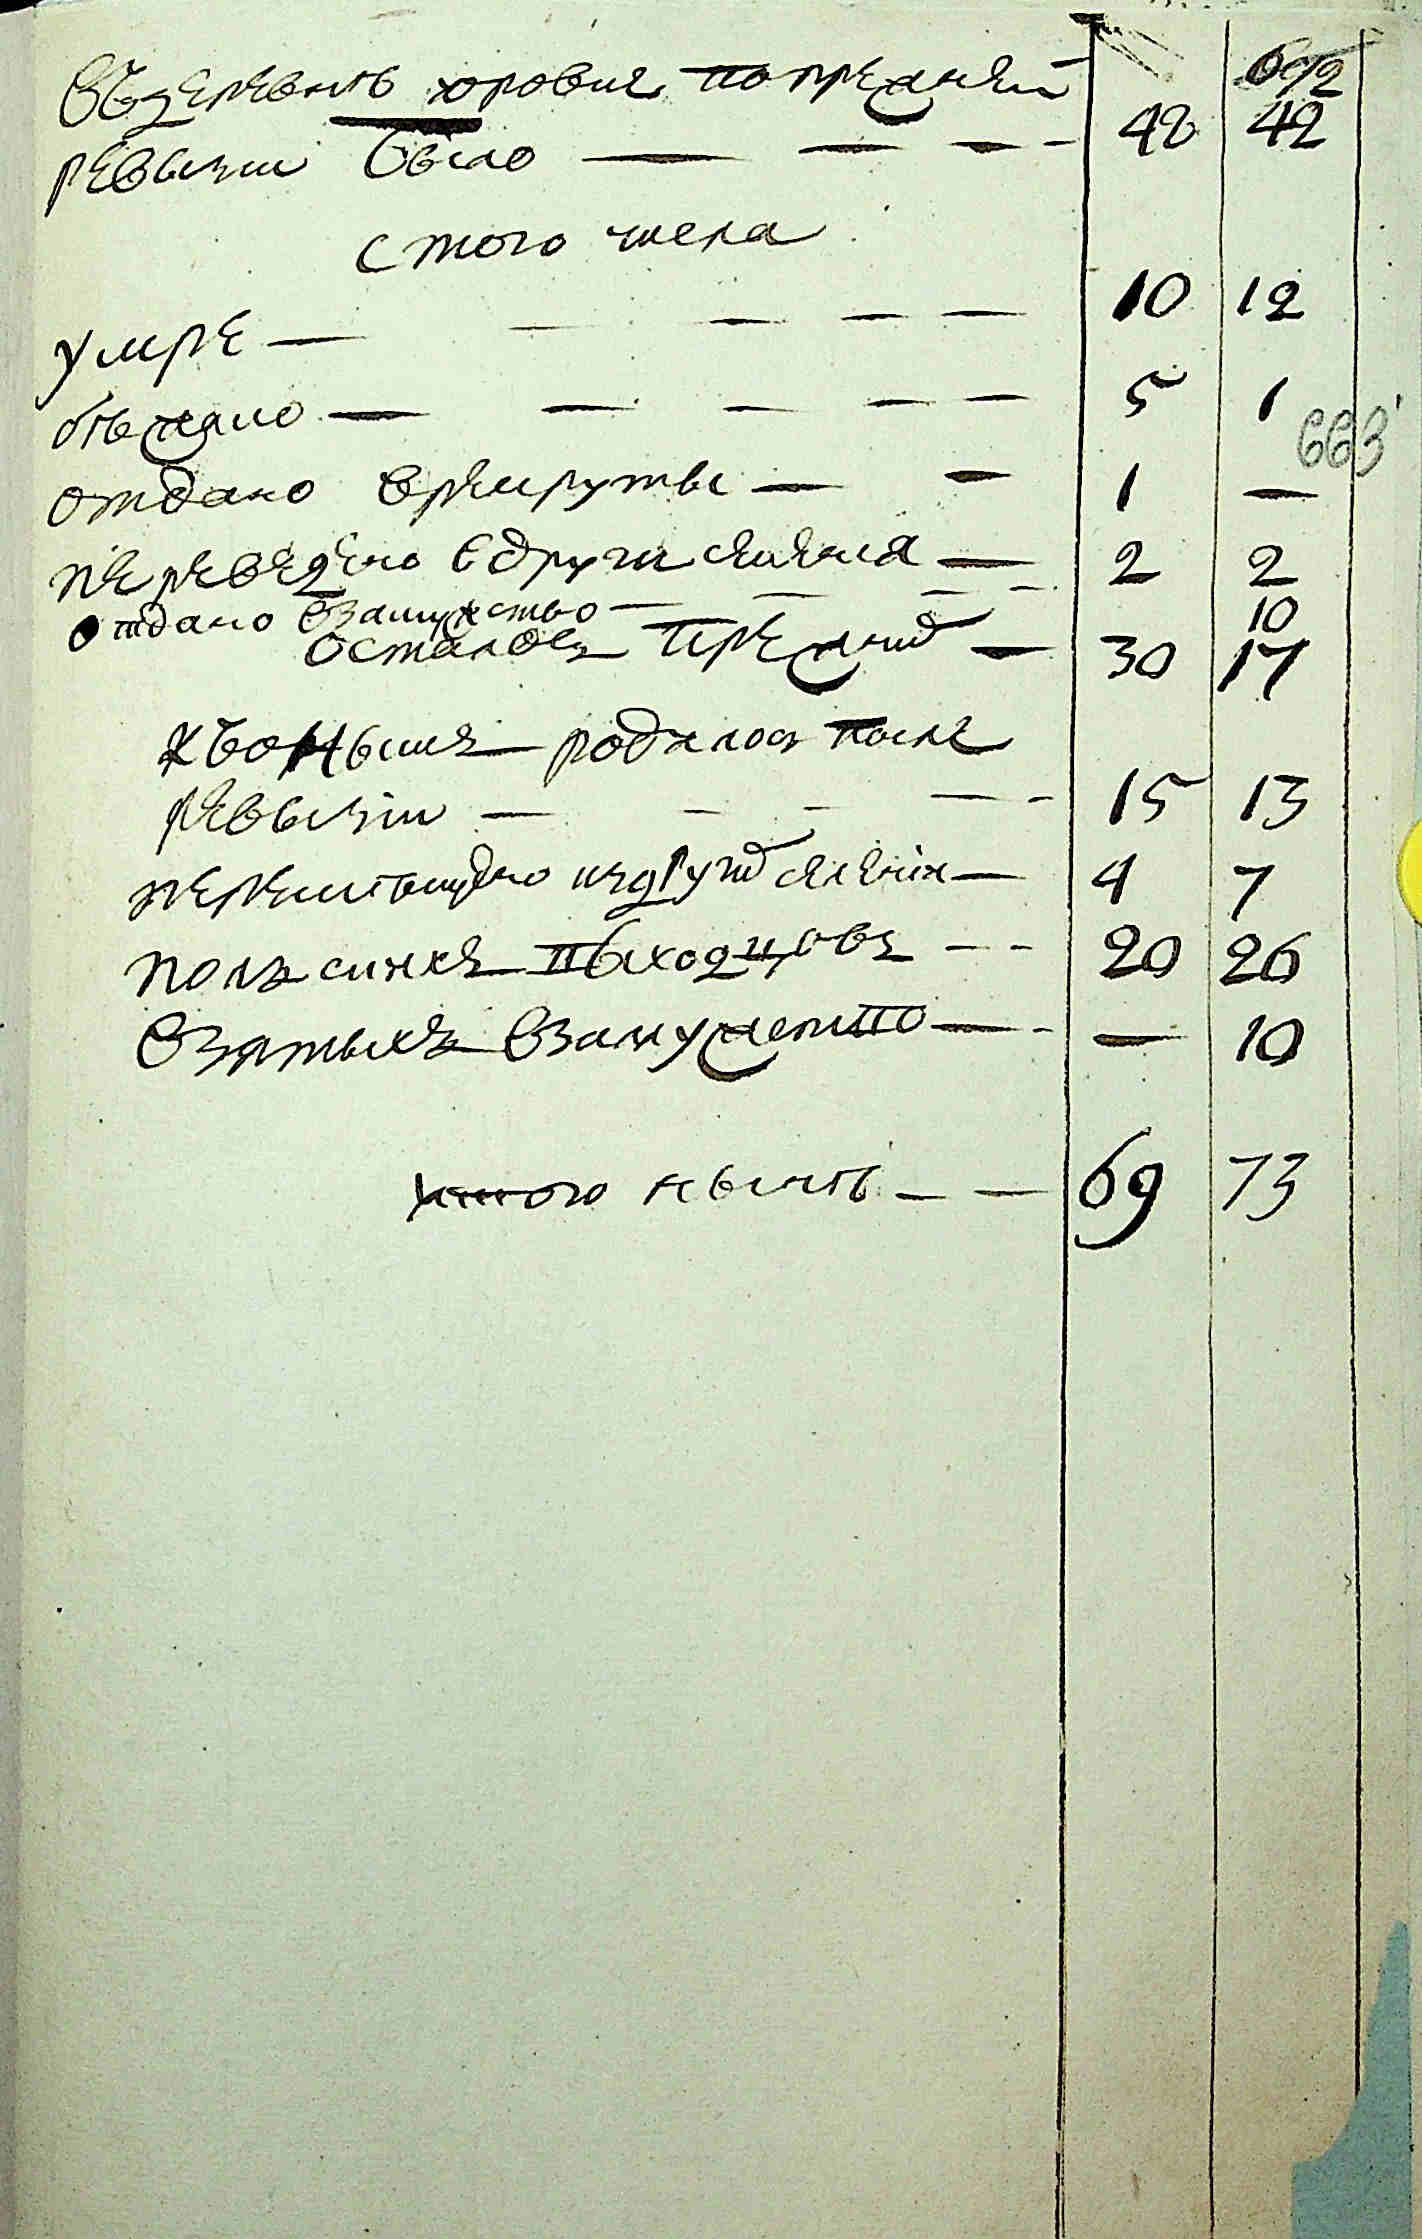 692
въдеревнѣ юровке попрежней
ревизии было — — — — 48 42
с того числа
умре — — — — — 10 12
бѣжало — — — — — 5 1
663
отдано врекруты — — 1 —
переведено вдруги селения — 2 2
отдано взамужство — — — — 10
осталось прежнид — 30 17
родилось после
ревизіи — — — — — 15 13
переимѣщено издруги селенія — 4 7
польскихъ выходцовъ — - 20 26
взятыхъ взамужство — - — 10
итого нынѣ — — 69 73